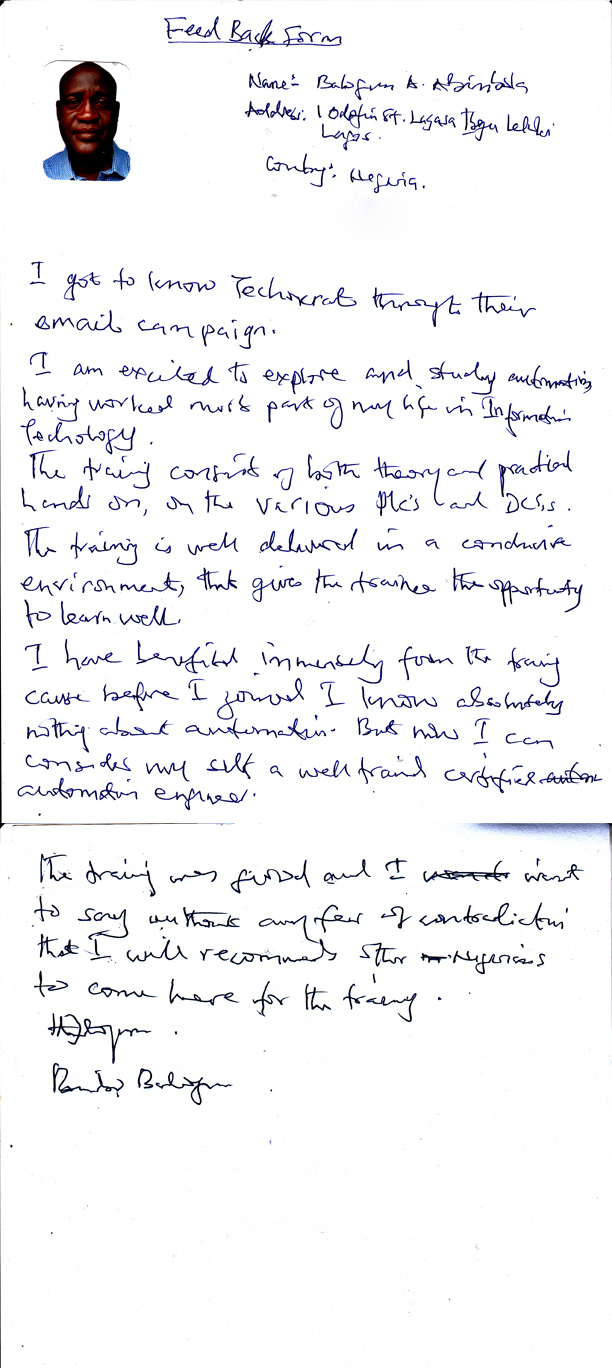 Feed Back Form
Name:- Balogun A. Abimbola
Address: 1 St. Lagasa Lekki
Lagos.
Country: Negeria.
I got to know Techoxrat through their
email campaign.
I am excited to explore and study automation
having worked most part of my life in Information
Techology.
The training consist of both theory and practical
hands on, on the various PLC's and DCSs.
The training is well delivered in a conducive
environment, that gives the trainee the opportunity
to learn well.
I have benefited immensely from the training
cause before I joined I know absolutely
nothing about automation. But now I can
consider my self a well traind certified
automation engineer.
The training was good and I want
to say without any fear of contradiction
that I will recommend other Nigerians
to come here for the training.
Balogun